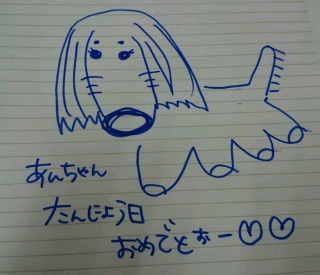 あいちゃん
たんじょう日
おめでとぉー♡♡